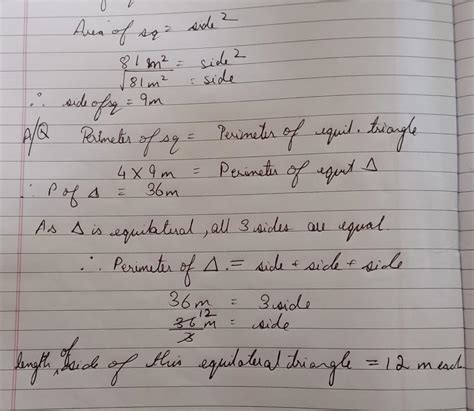 Area of sq = side²
81 m² = side²
√81 m² = side
∴ side of sq = 9m
A/Q Perimeter of sq = Perimeter of equil. triangle
4 × 9 m = Perimeter of equit Δ
∴ P of Δ = 36m
As Δ is equilateral, all 3 sides are equal.
∴ Perimeter of Δ = side + side + side
36 m = 3 side
12
36 m = side
3
length of side of this equilateral triangle = 12 m each